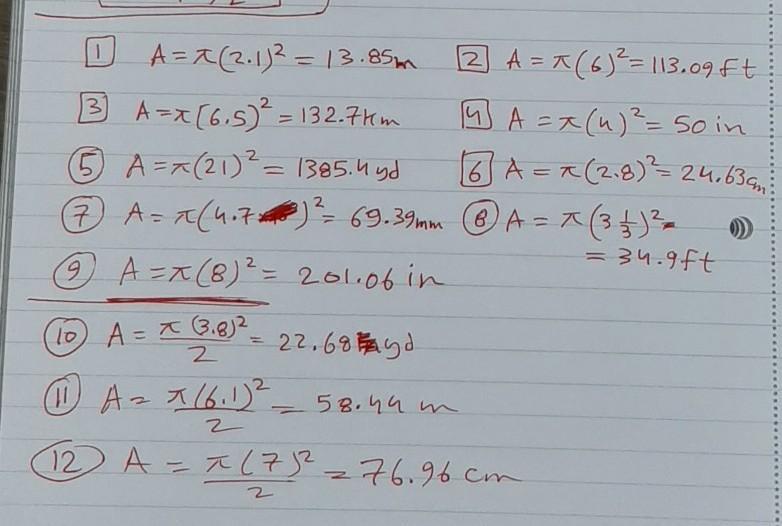 1 A = π(2.1)² = 13.85m 2 A = π(6)² = 113.09 ft
3 A = π(6.5)² = 132.7 km 4 A = π(4)² = 50 in
5 A = π(21)² = 1385.4 yd 6 A = π(2.8)² = 24.63cm
7 A = π(4.7)² = 69.39mm 8 A = π(3 1/3)² =
= 34.9 ft
9 A = π(8)² = 201.06 in
10 A = π(3.8)²/2 = 22.68 yd
11 A = π(6.1)²/2 = 58.44 m
12 A = π(7)²/2 = 76.96 cm